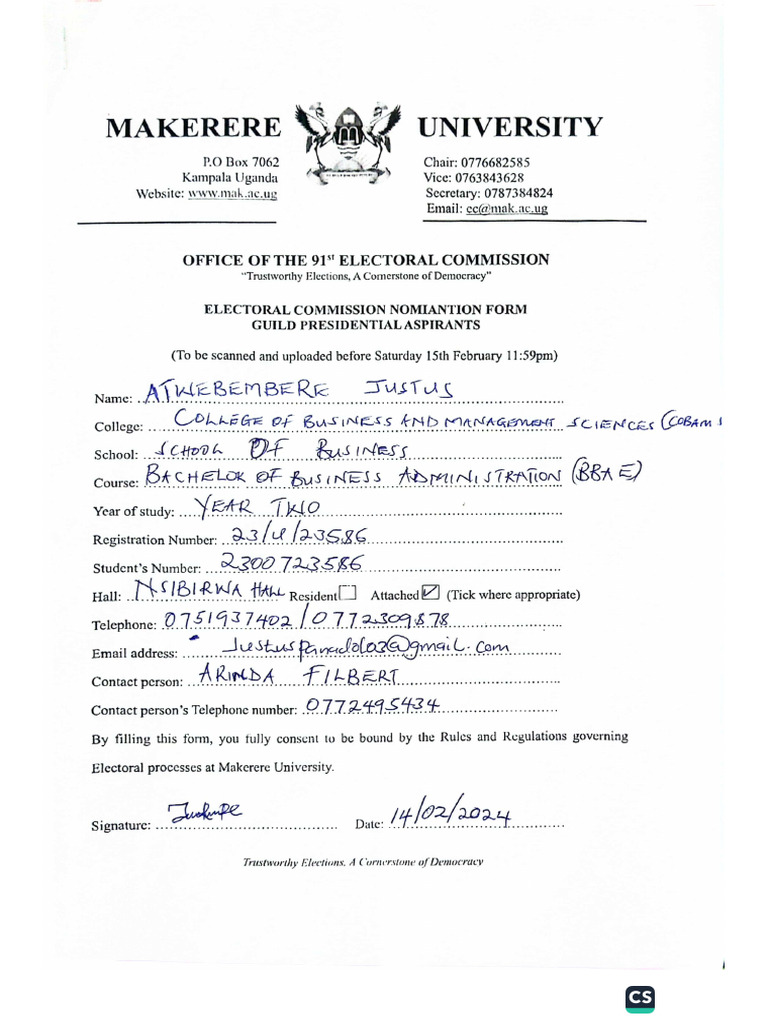 MAKERERE UNIVERSITY
P.O Box 7062
Kampala Uganda
Website: www.mak.ac.ug
Chair: 0776682585
Vice: 0763843628
Secretary: 0787384824
Email: ec@mak.ac.ug
OFFICE OF THE 91st ELECTORAL COMMISSION
"Trustworthy Elections, A Cornerstone of Democracy"
ELECTORAL COMMISSION NOMIANTION FORM
GUILD PRESIDENTIAL ASPIRANTS
(To be scanned and uploaded before Saturday 15th February 11:59pm)
Name: ATWEBEMBERE JUSTUS
College: COLLEGE OF BUSINESS AND MANAGEMENT SCIENCES (COBAMS
School: SCHOOL OF BUSINESS
Course: BACHELOR OF BUSINESS ADMINISTRATION (BBA E)
Year of study: YEAR TWO
Registration Number: 23/U/23586
Student's Number: 2300723586
Hall: NSIBIRWA HALL Resident Attached ✓ (Tick where appropriate)
Telephone: 0751937402/0772309878
Email address: @gmail.com
Contact person: ARINDA FILBERT
Contact person's Telephone number: 0772495434
By filling this form, you fully consent to be bound by the Rules and Regulations governing
Electoral processes at Makerere University.
Signature: Date: 14/02/2024
Trustworthy Elections, A Cornerstone of Democracy
CS